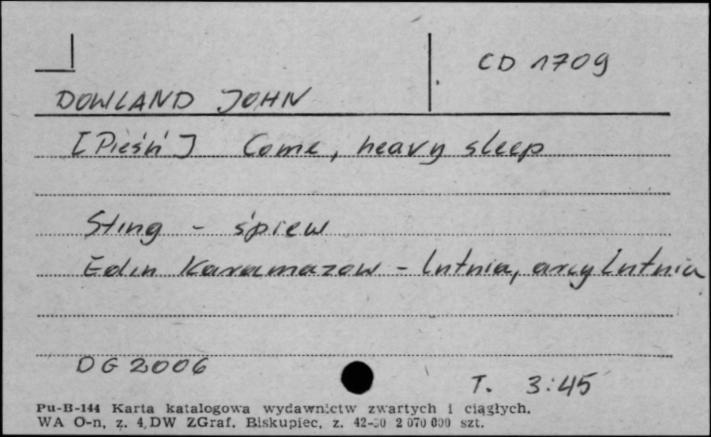 CD 1709
DOWLAND JOHN
[Pieśń] Come, heavy sleep
Sting - śpiew
Edin Karamazow - lutnia, arcylutnia
DG 2006
T. 3:45
Pu-B-144 Karta katalogowa wydawnictw zwartych i ciągłych.
WA O-n, z. 4, DW ZGraf. Biskupiec, z. 2 070 000 szt.